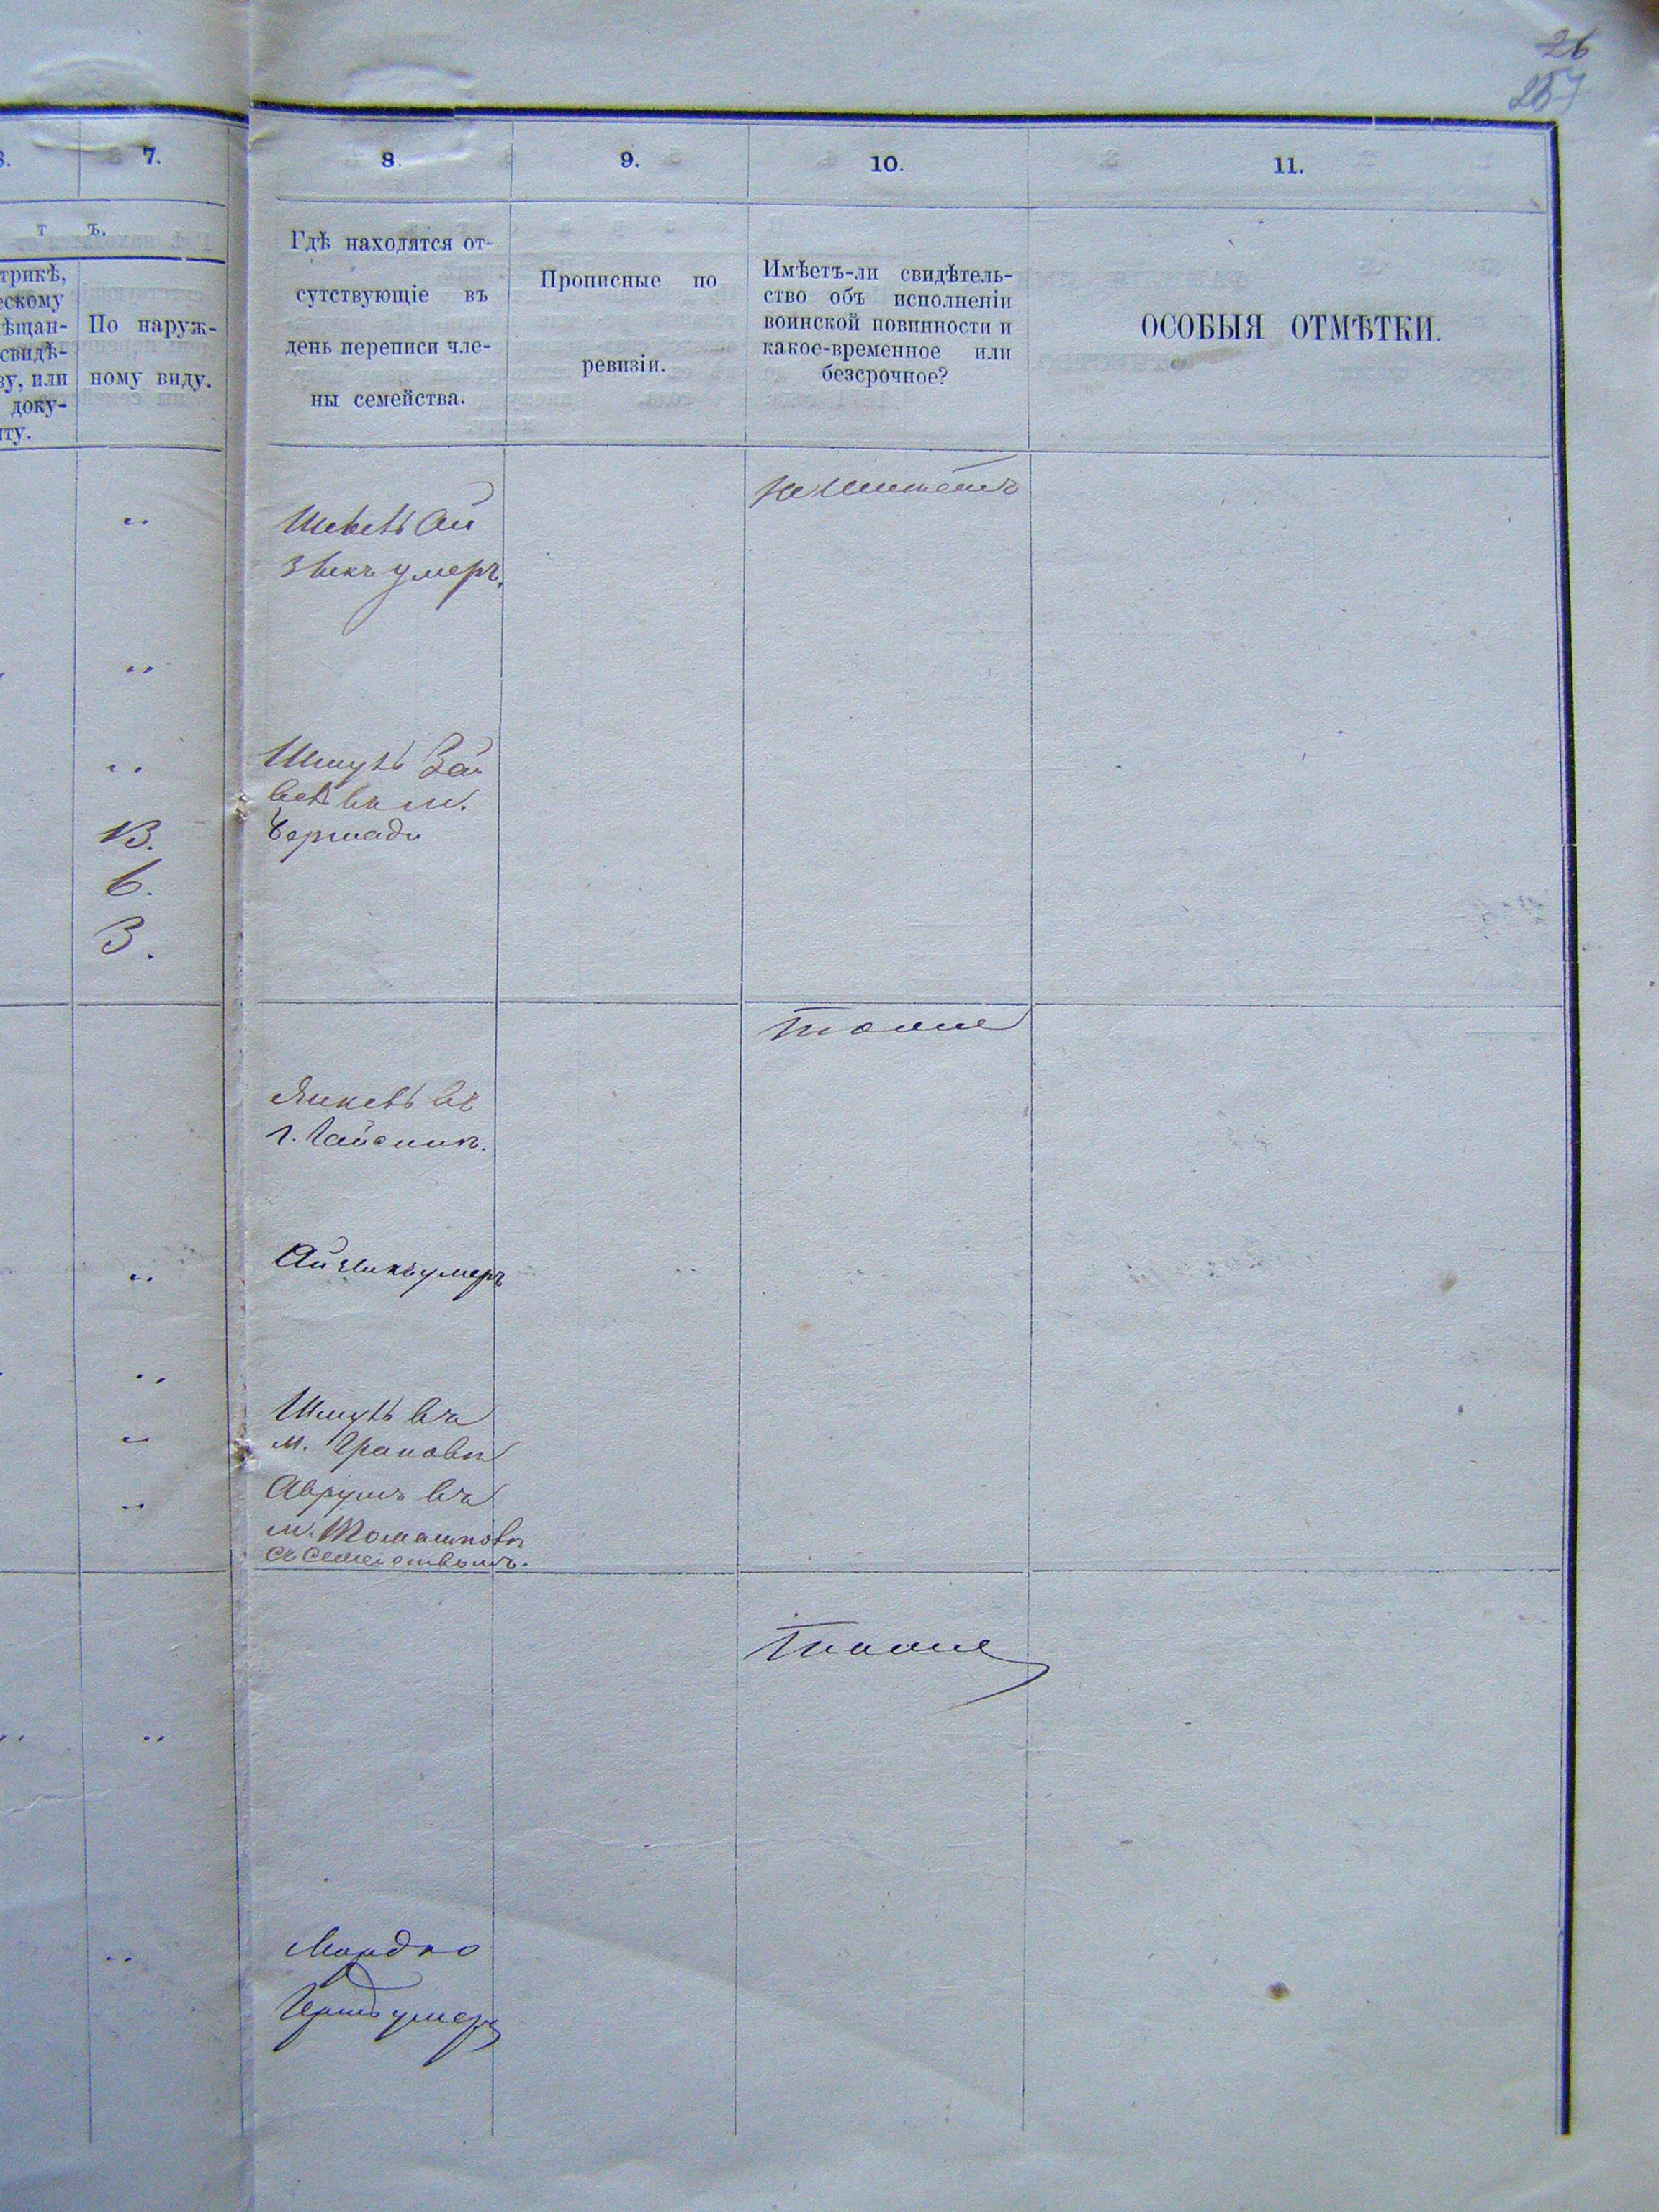 26
257
7.
8.
9.
10.
11.
т ъ.
трикѣ,
ескому
ѣщан-
свидѣ-
ву, или
доку-
нту.
По наруж-
ному виду.
Гдѣ находятся от-
сутствующіе въ
день переписи чле-
ны семейства.
Прописные по
ревизіи.
Имѣетъ-ли свидѣтель-
ство объ исполненіи
воинской повинности и
какое-временное или
безсрочное?
ОСОБЫЯ ОТМѢТКИ.
не имѣетъ
„
Ай
зикъ умеръ.
„
„
Шмуль
въ м.
Бершади
13.
6.
3.
тоже
въ
г. Гайсинѣ.
„
Айзикъ умеръ
„
Шмуль въ
„
м. Грановѣ
Аврумъ въ
„
м.
съ семействомъ.
тоже
„ „
Мордко
„
Гершъ умеръ